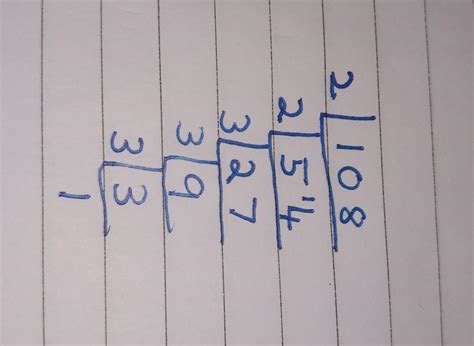 2 108
2 54
3 27
3 9
3 3
1